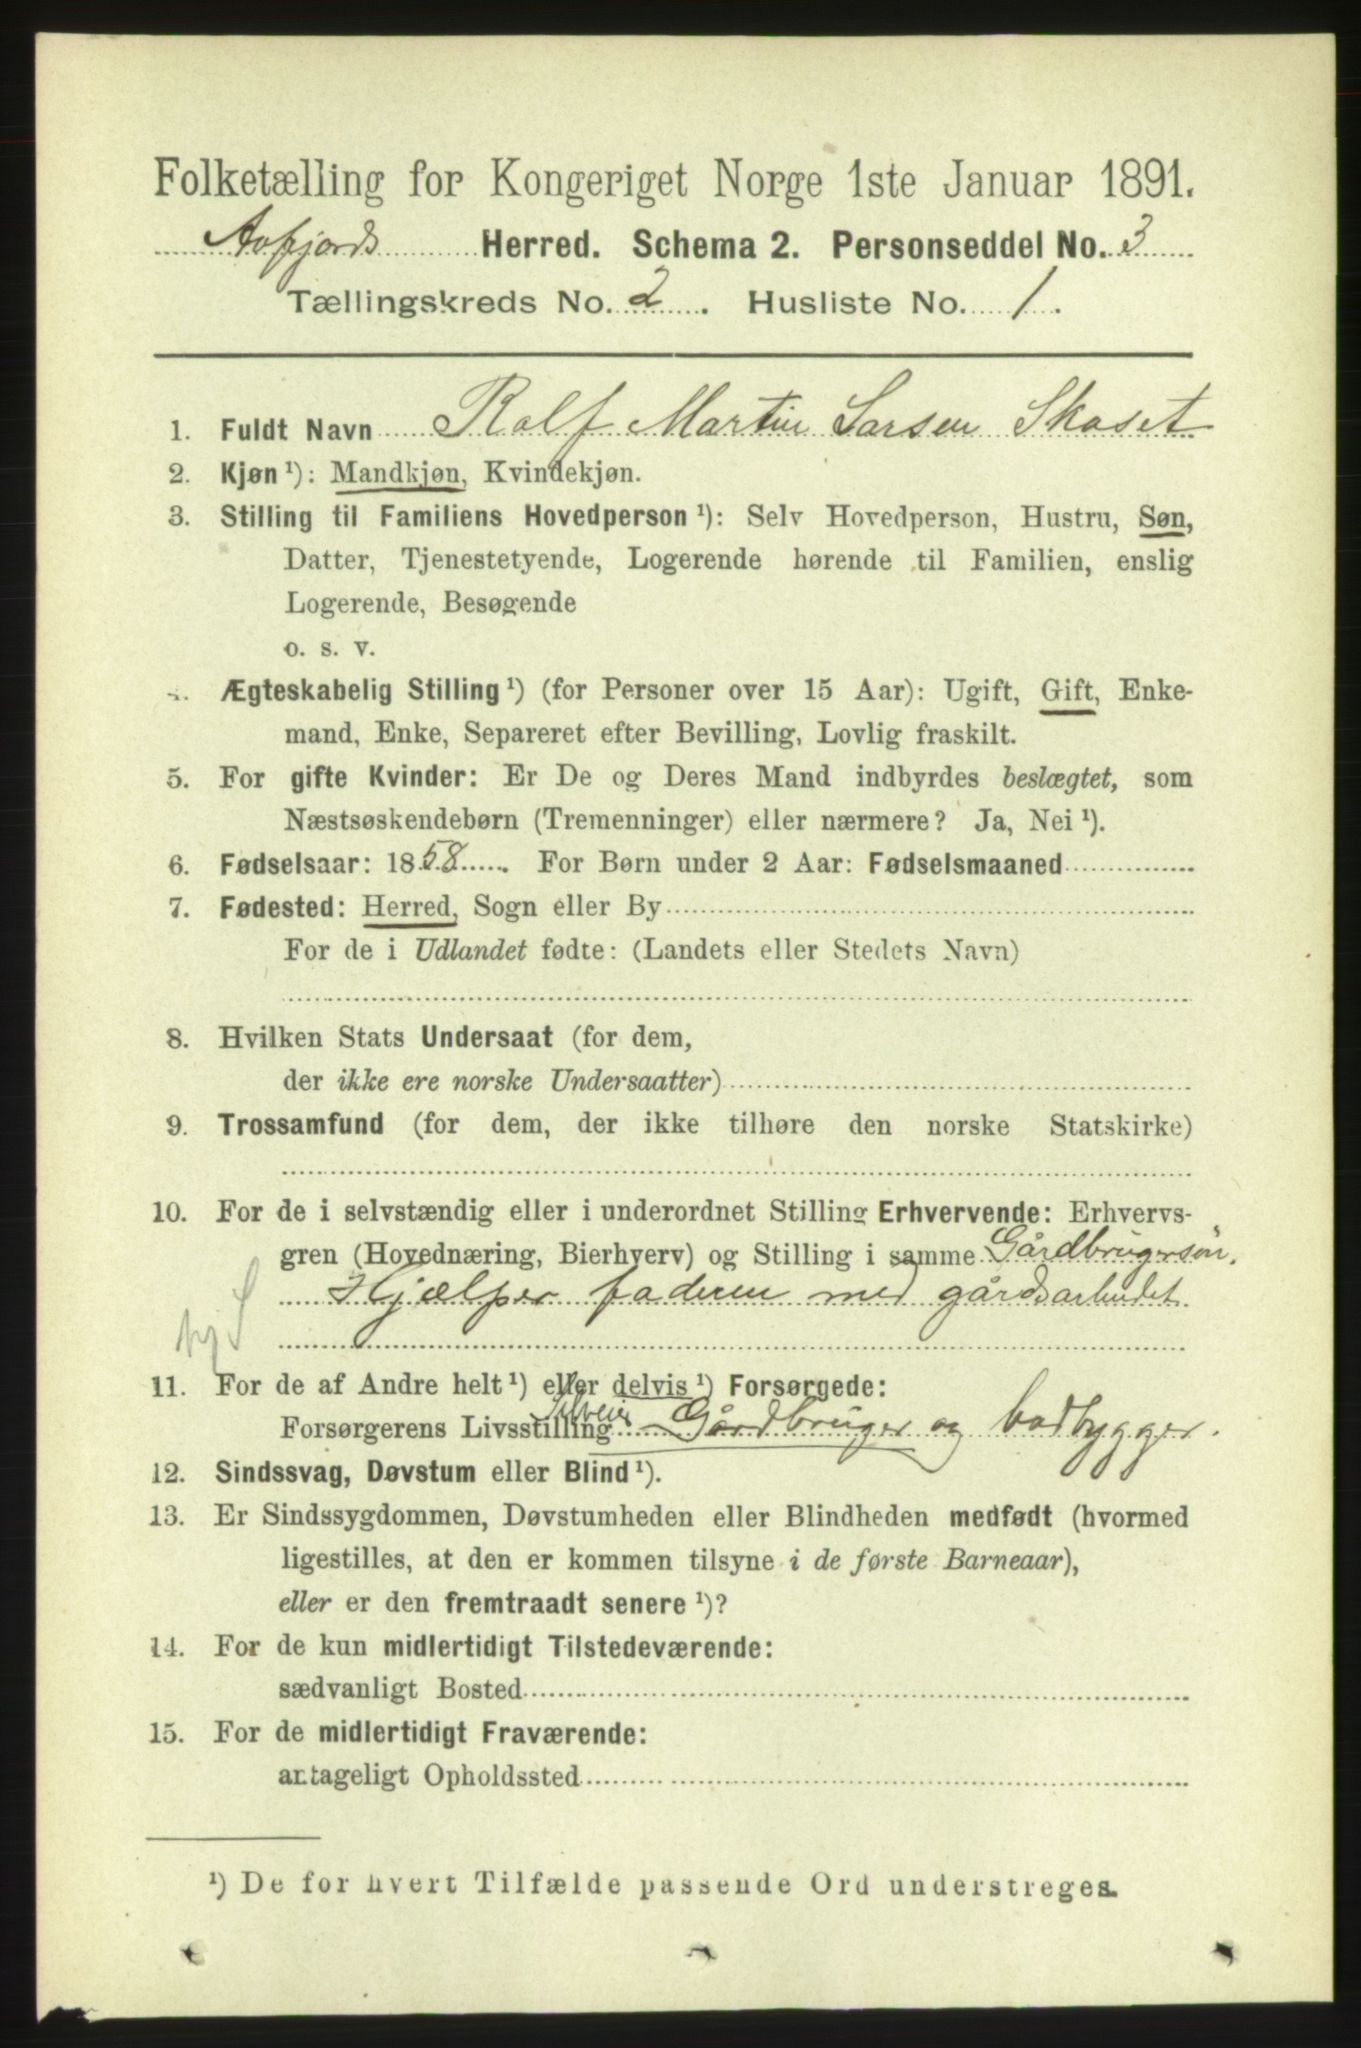 Folketælling for Kongeriget Norge 1ste Januar 1891.
Aafjords Herred. Schema 2. Personseddel No. 3
Tællingskreds No. 2. Husliste No. 1.
1. Fuldt Navn Rolf Martin Larsen Skaset
2. Kjøn ¹): Mandkjøn, Kvindekjøn.
3. Stilling til Familiens Hovedperson ¹): Selv Hovedperson, Hustru, Søn,
Datter, Tjenestetyende, Logerende hørende til Familien, enslig
Logerende, Besøgende
o. s. v.
4. Ægteskabelig Stilling ¹) (for Personer over 15 Aar): Ugift, Gift, Enke-
mand, Enke, Separeret efter Bevilling, Lovlig fraskilt.
5. For gifte Kvinder: Er De og Deres Mand indbyrdes beslægtet, som
Næstsøskendebørn (Tremenninger) eller nærmere? Ja, Nei ¹).
6. Fødselsaar: 1858. For Børn under 2 Aar: Fødselsmaaned
7. Fødested: Herred, Sogn eller By
For de i Udlandet fødte: (Landets eller Stedets Navn)
8. Hvilken Stats Undersaat (for dem,
der ikke ere norske Undersaatter)
9. Trossamfund (for dem, der ikke tilhøre den norske Statskirke)
10. For de i selvstændig eller i underordnet Stilling Erhvervende: Erhvervs-
gren (Hovednæring, Bierhverv) og Stilling i samme Gårdbrugersön.
Hjælper faderen med gårdsarbeidet
11. For de af Andre helt ¹) eller delvis ¹) Forsørgede:
Forsørgerens Livsstilling Selveier Gårdbruger og baadbygger.
12. Sindssvag, Døvstum eller Blind ¹).
13. Er Sindssygdommen, Døvstumheden eller Blindheden medfødt (hvormed
ligestilles, at den er kommen tilsyne i de første Barneaar),
eller er den fremtraadt senere ¹)?
14. For de kun midlertidigt Tilstedeværende:
sædvanligt Bosted
15. For de midlertidigt Fraværende:
antageligt Opholdssted
¹) De for hvert Tilfælde passende Ord understreges.